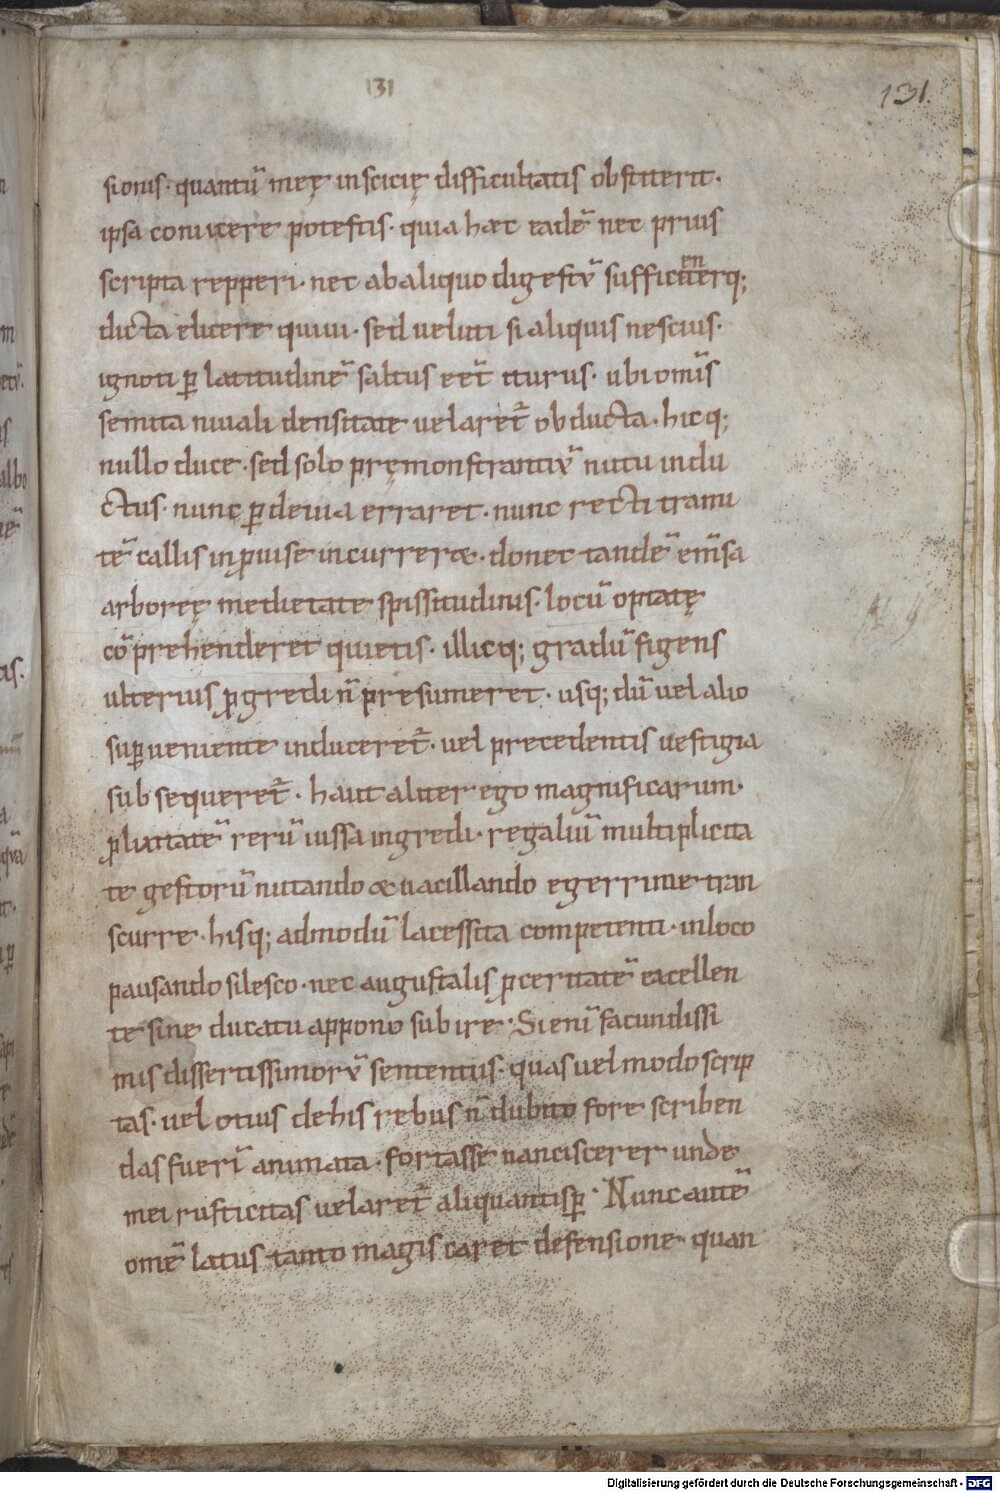 131
131.
sionis· quantū meę inscicię difficultatis obstiterit·
ipsa conicere potestis· quia hæc eadē nec prius
scripta repperi· nec abaliquo digestoꝝ sufficienterq;
dicta elicere quiui· sed veluti si aliquis nescius·
ignoti ꝑ latitudinē saltus eēt̄ iturus· ubi om̄is
semita niuali densitate velaret̄ obducta· hicq;
nullo duce· sed solo pręmonstrantiū nutu indu
ctus· nunc ꝑ deuia erraret· nunc recti trami
tē callis inꝓuise incurreret· donec tandē em̄sa
arboreę medietate spissitudinis· locū optatę
cōprehenderet quietis· illicq; gradū figens
ulterius ꝓgredi n̄ presumeret· usq; dū vel alio
suꝑueniente induceret̄· vel precedentis vestigia
subsequeret̄· haut aliter ego magnificarum·
ꝓlixitatē rerū iussa ingredi· regaliū multiplicita
te gestorū nutando & vacillando egerrime tran
scurre· hisq; admodū lacessita competenti· inloco
pausando silesco· nec augustalis ꝓceritatē excellen
te sine ducatu appono subire· Si eni facundissi
mis dissertissimoꝝ sententiis· quas vel modo scrip
tas· vel otius dehis rebus n̄ dubito fore scriben
das fueri animata· fortasse nanciscerer unde
mei rusticitas velaret̄ aliquantisꝑ· Nunc autē
omē latus tanto magis caret defensione· quan
Digitalisierung gefördert durch die Deutsche Forschungsgemeinschaft - DFG